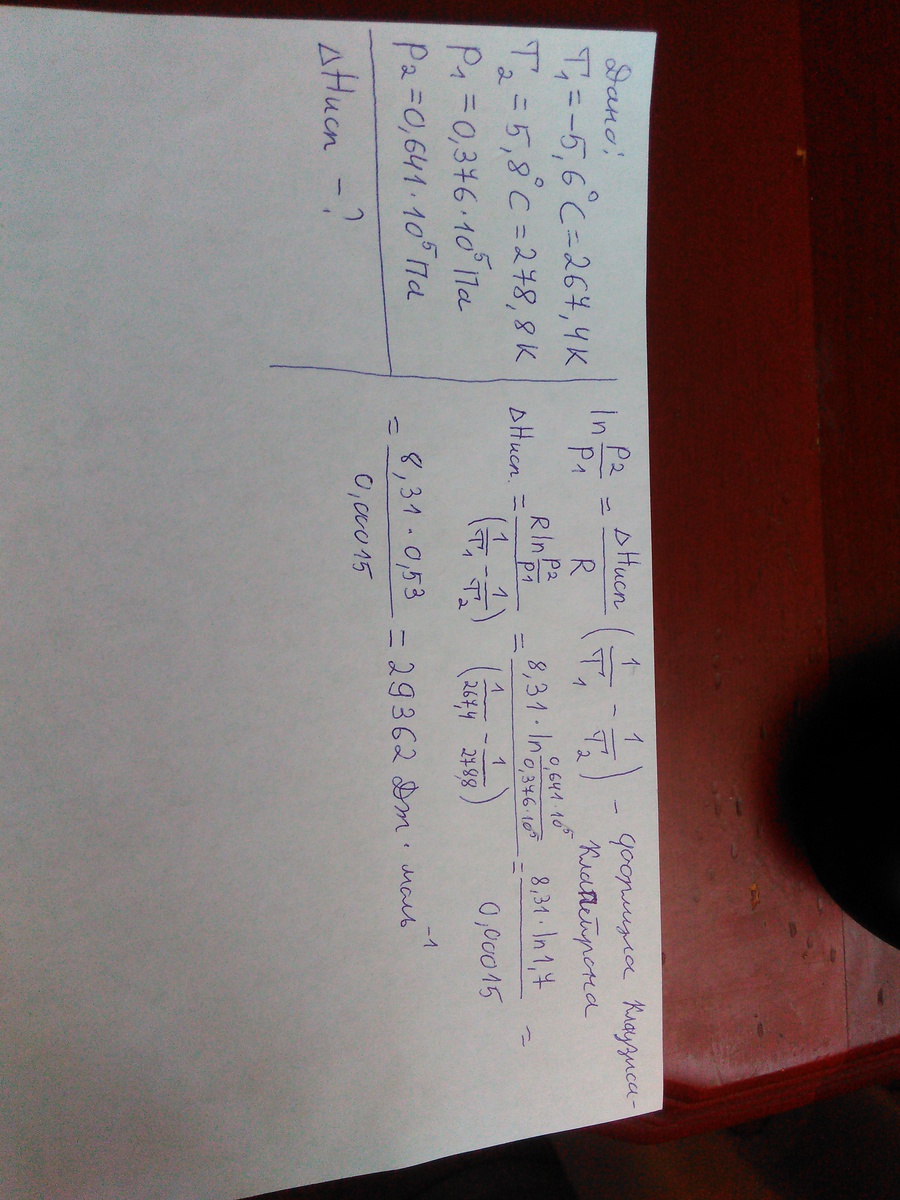 Дано:
T₁ = -5,6°C = 267,4 K
T₂ = 5,8°C = 278,8 K
P₁ = 0,376·10⁵ Па
P₂ = 0,641·10⁵ Па
ΔHисп - ?
ln P₂/P₁ = ΔHисп/R (1/T₁ - 1/T₂) - формула Клаузиса-
Клапейрона
ΔHисп. = R ln P₂/P₁ / (1/T₁ - 1/T₂) = 8,31·ln 0,641·10⁵/0,376·10⁵ / (1/267,4 - 1/278,8) = 8,31·ln1,7 / 0,00015 =
= 8,31·0,53 / 0,00015 = 29362 Дж·моль⁻¹